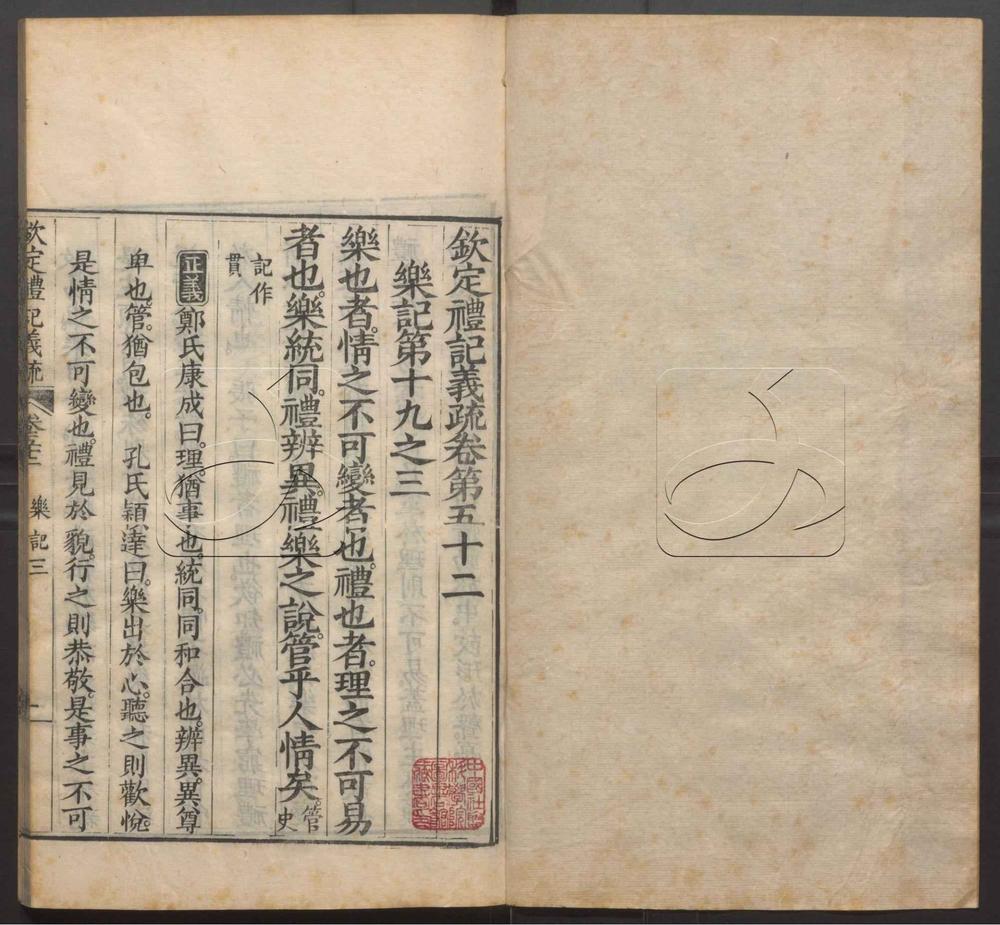 欽定禮記義疏卷第五十二
樂記第十九之三
樂也者。情之不可變者也。禮也者。理之不可易
者也。樂統同。禮辨異。禮樂之說。管乎人情矣。管史
記作貫
正義鄭氏康成曰。理。猶事也。統同。同和合也。辨異。異尊
卑也。管。猶包也。孔氏穎達曰。樂出於心。聽之則歡悅。
是情之不可變也。禮見於貌。行之則恭敬。是事之不可
欽定禮記義疏 卷五十二 樂記三 一